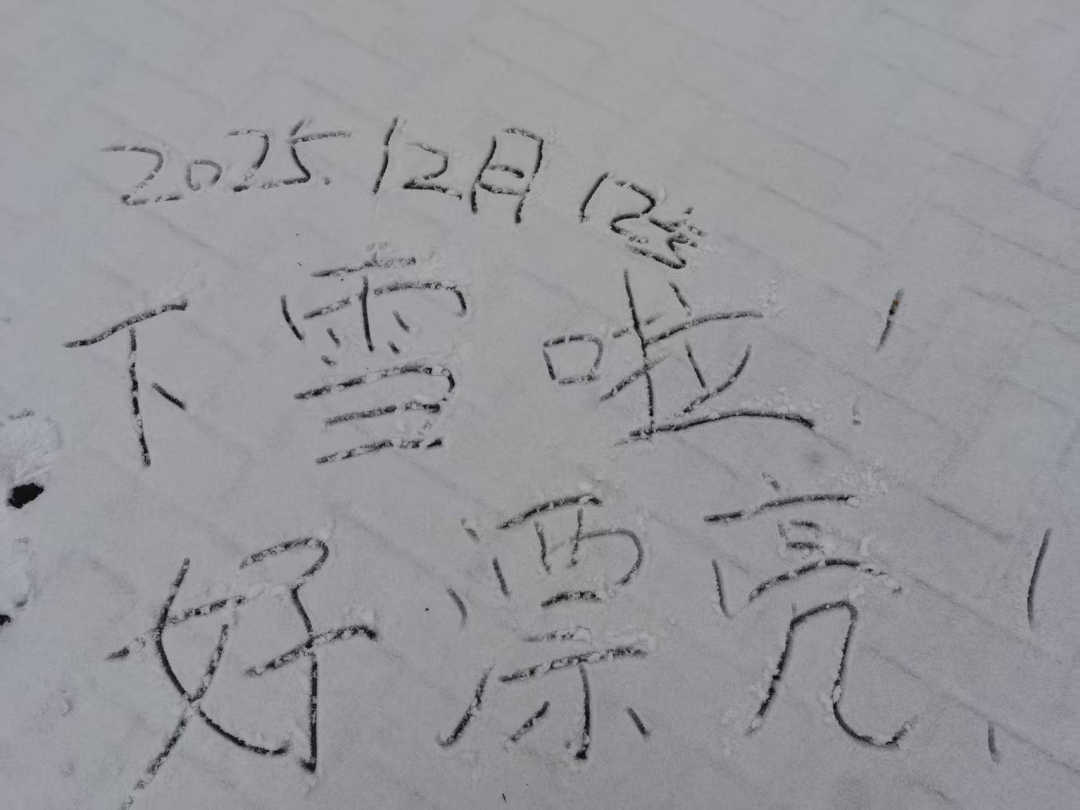 2025.12月12号
下雪啦！
好漂亮！